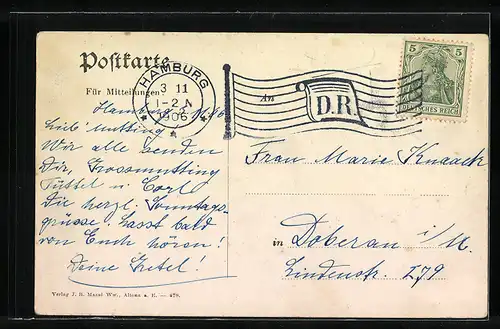 Postkarte
Für Mitteilungen
HAMBURG
3 11
1-2 N
1906
An
D.R.
5 5
DEUTSCHES REICH
Hamburg
Lieb' Mutting
Wir alle senden
Dir, Grossmutting
Tüttel u. Carl
Die herzl. Sonntags-
grüsse. Lasst bald
von Euch hören!
Deine Gretel!
Frau Marie Knaack
in Doberan i/M.
Lindenstr. 279
Verlag J. R. Massé Ww., Altona a. E. — 478.